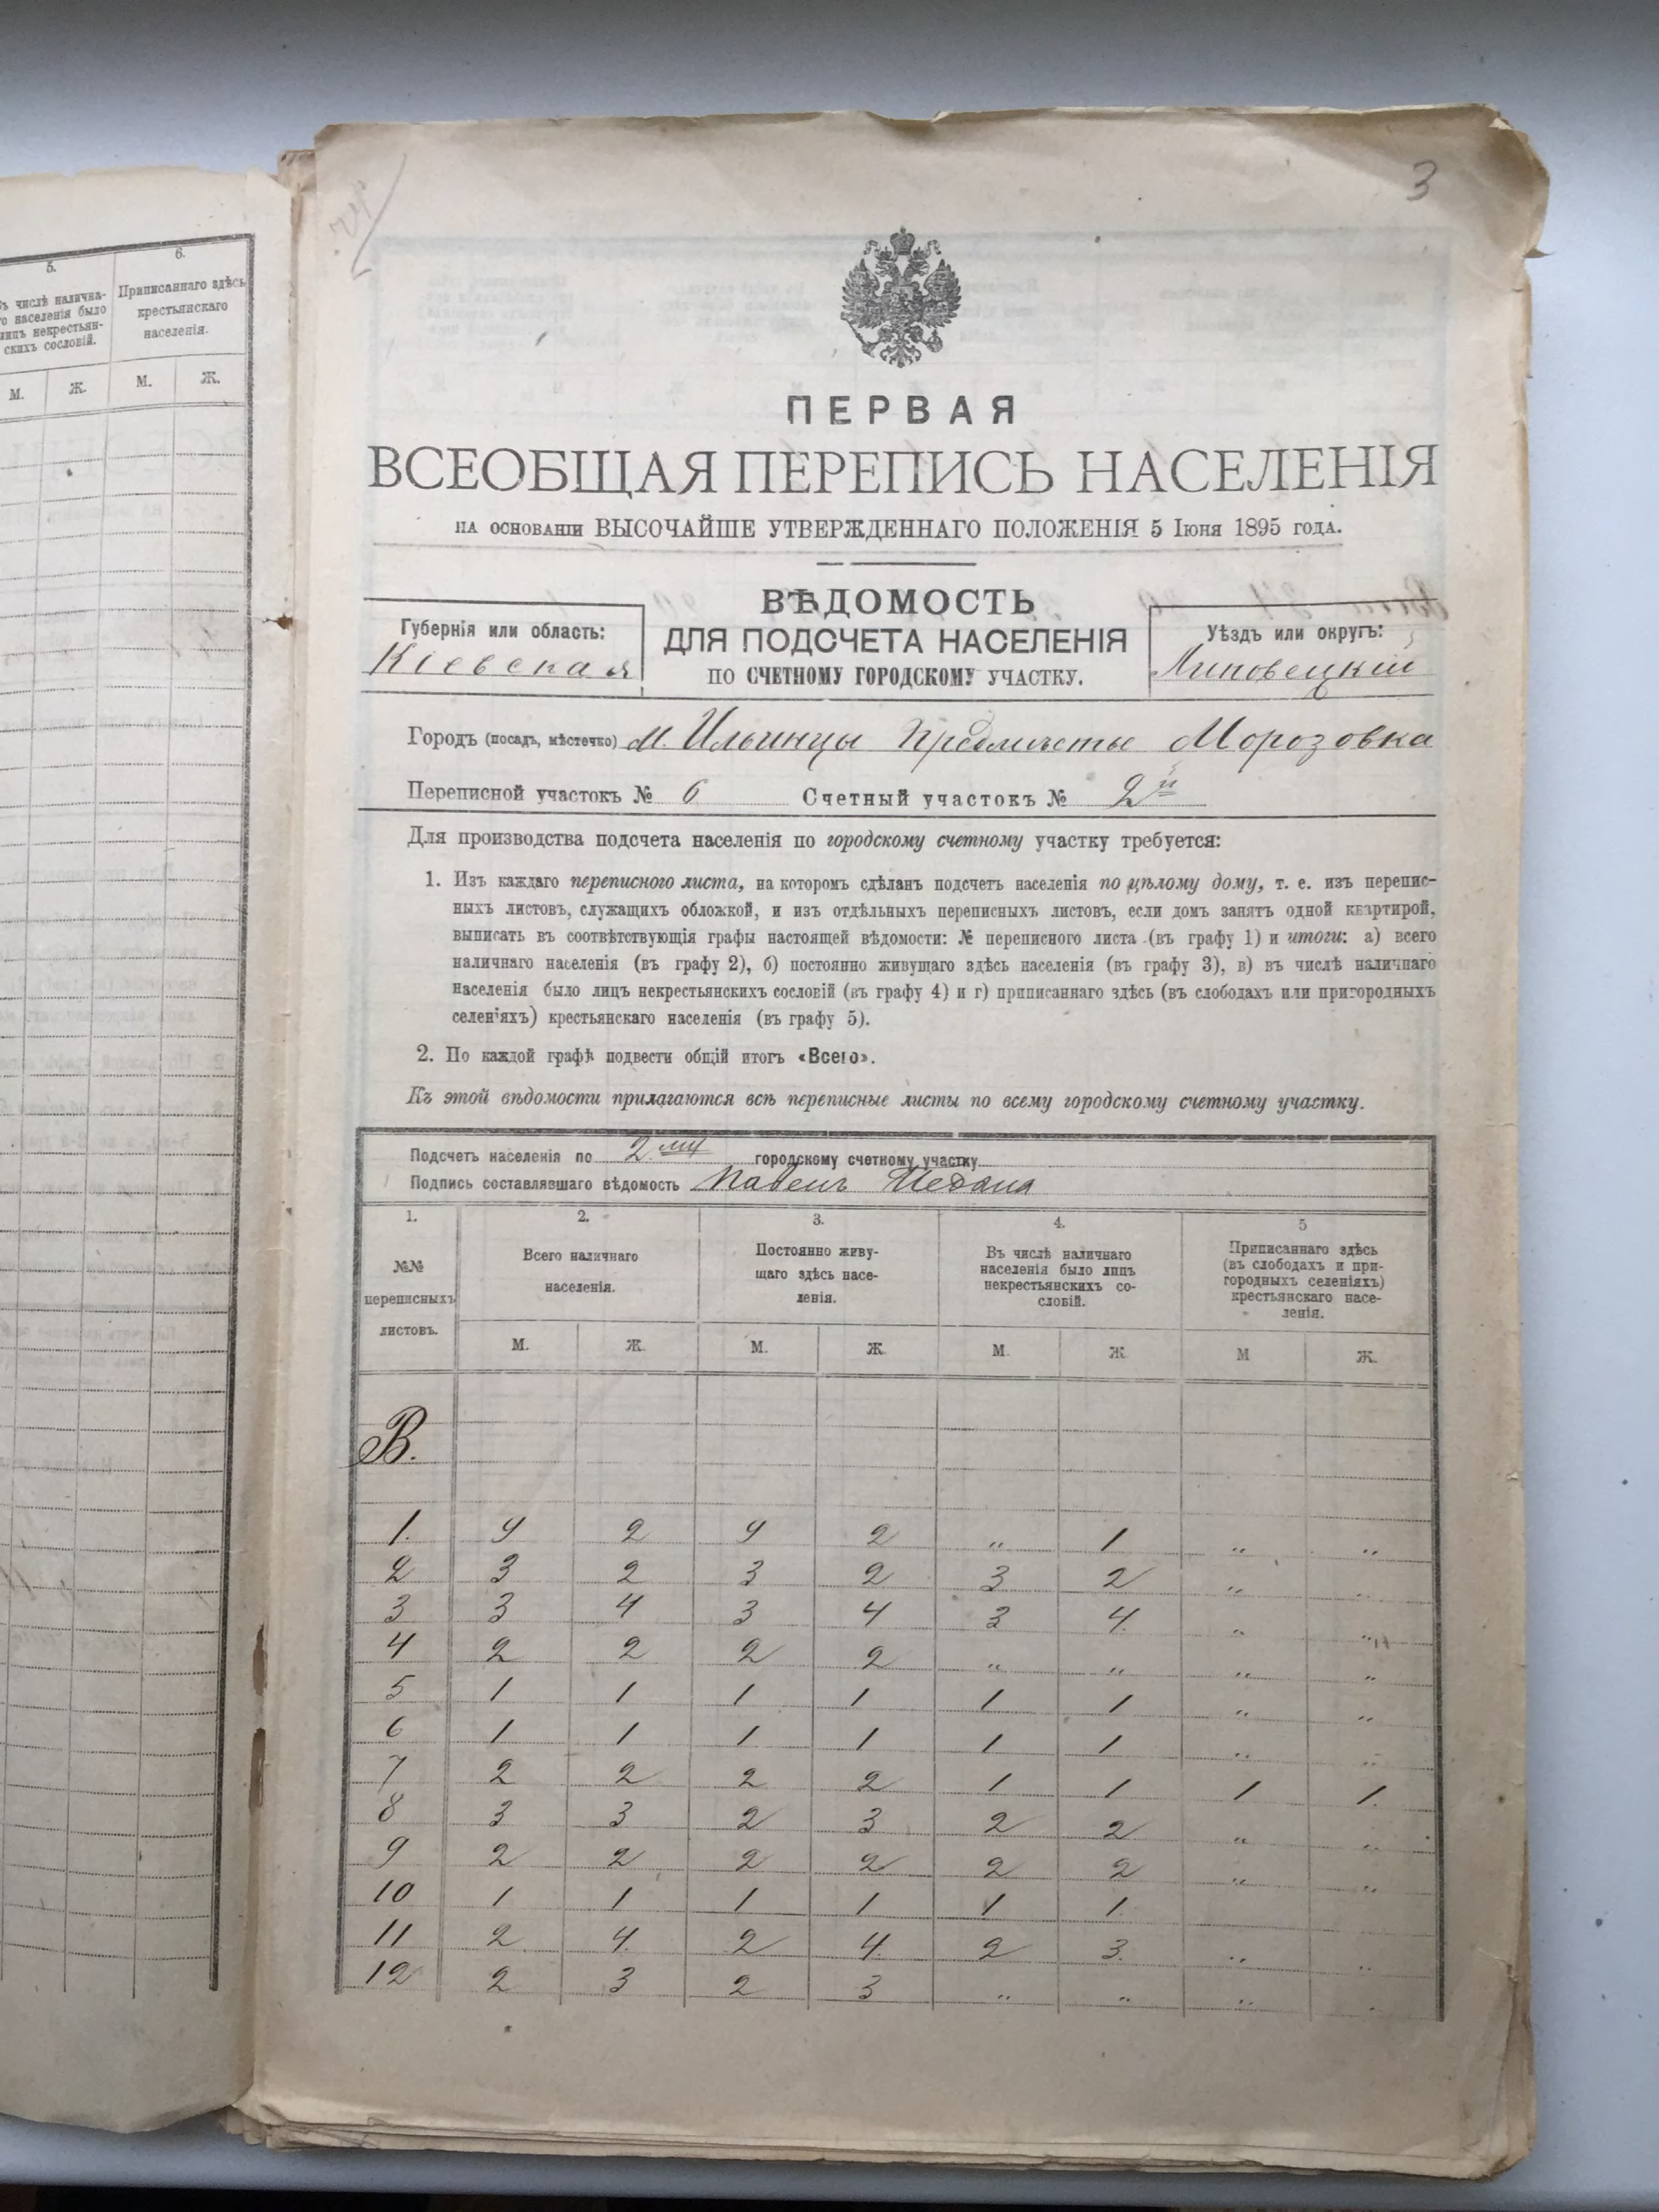 5.
6.
Въ числѣ налична-
го населенія было
лицъ некрестьян-
скихъ сословій.
Приписаннаго здѣсь
крестьянскаго
населенія.
М. Ж. М. Ж.
3
ПЕРВАЯ
ВСЕОБЩАЯ ПЕРЕПИСЬ НАСЕЛЕНІЯ
НА ОСНОВАНІИ ВЫСОЧАЙШЕ УТВЕРЖДЕННАГО ПОЛОЖЕНІЯ 5 Іюня 1895 ГОДА.
ВѢДОМОСТЬ
ДЛЯ ПОДСЧЕТА НАСЕЛЕНІЯ
ПО СЧЕТНОМУ ГОРОДСКОМУ УЧАСТКУ.
Губернія или область:
Кіевская
Уѣздъ или округъ:
Липовецкій
Городъ (посадъ, мѣстечко) м. Ильинцы Предмѣстье Морозовка
Переписной участокъ № 6 Счетный участокъ № 2й
Для производства подсчета населенія по городскому счетному участку требуется:
1. Изъ каждаго переписного листа, на которомъ сдѣланъ подсчетъ населенія по цѣлому дому, т. е. изъ перепис-
ныхъ листовъ, служащихъ обложкой, и изъ отдѣльныхъ переписныхъ листовъ, если домъ занятъ одной квартирой,
выписать въ соотвѣтствующія графы настоящей вѣдомости: № переписного листа (въ графу 1) и итоги: а) всего
наличнаго населенія (въ графу 2), б) постоянно живущаго здѣсь населенія (въ графу 3), в) въ числѣ наличнаго
населенія было лицъ некрестьянскихъ сословій (въ графу 4) и г) приписаннаго здѣсь (въ слободахъ или пригородныхъ
селеніяхъ) крестьянскаго населенія (въ графу 5).
2. По каждой графѣ подвести общій итогъ «Всего».
Къ этой вѣдомости прилагаются всѣ переписные листы по всему городскому счетному участку.
Подсчетъ населенія по 2му городскому счетному участку
Подпись составлявшаго вѣдомость Павелъ
1. 2. 3. 4. 5
№№
переписныхъ
листовъ.
Всего наличнаго
населенія.
Постоянно живу-
щаго здѣсь насе-
ленія.
Въ числѣ наличнаго
населенія было лицъ
некрестьянскихъ со-
словій.
Приписаннаго здѣсь
(въ слободахъ и при-
городныхъ селеніяхъ)
крестьянскаго насе-
ленія.
М. Ж. М. Ж. М. Ж. М Ж.
В.
1. 4 2 4 2 „ 1 „ „
2 3 2 3 2 3 2 „ „
3 3 4 3 4 3 4. „ „
4 2 2 2 2 „ „ „ „
5 1 1 1 1 1 1 „ „
6 1 1 1 1 1 1 „ „
7 2 2 2 2 1 1 1 1.
8 3 3 2 3 2 2 „ „
9 2 2 2 2 2 2 „ „
10 1 1 1 1 1 1.
11 2 4. 2 4. 2 3. „ „
12 2 3 2 3 „ „ „ „